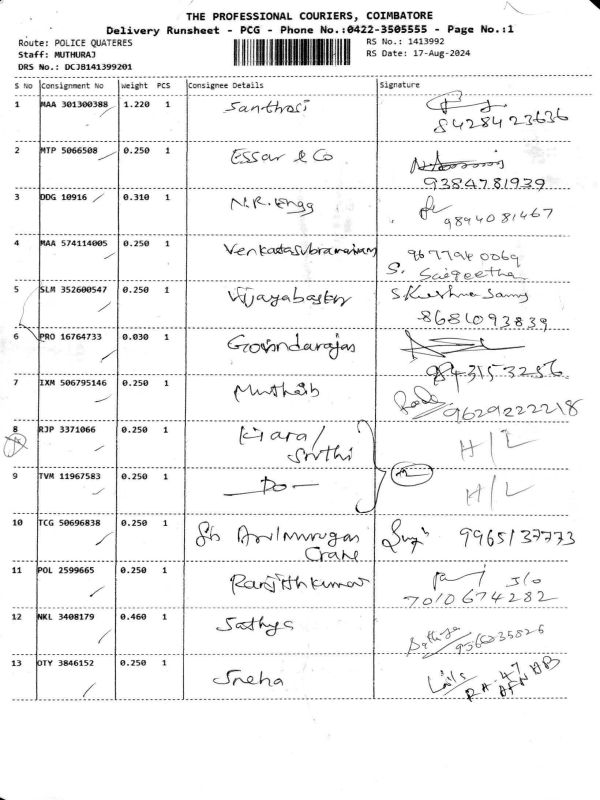 THE PROFESSIONAL COURIERS, COIMBATORE
Delivery Runsheet - PCG - Phone No.:0422-3505555 - Page No.:1
Route: POLICE QUATERES
RS No.: 1413992
Staff: MUTHURAJ
RS Date: 17-Aug-2024
DRS No.: DCJB141399201
S No Consignment No Weight PCS Consignee Details Signature
1 MAA 301300388 1.220 1 Santhosi
8428423636
2 MTP 5066508 0.250 1 Essar & Co
9384781939
3 DDG 10916 0.310 1 N.R. Engg
9894081467
4 MAA 574114005 0.250 1 Venkatasubramaniam 9677940069
S. Sangeetha
5 SLM 352600547 0.250 1 Vijayabaskr S. Krishna Samy
8681093839
6 PRO 16764733 0.030 1 Govindarajas
9843153256
7 IXM 506795146 0.250 1 Muthaib
9629222218
8 RJP 3371066 0.250 1 Kiara/ H/L
Sruthi
9 TVM 11967583 0.250 1 — Do — H/L
10 TCG 50696838 0.250 1 Sb Arulmurugan 9965137773
Crane
11 POL 2599665 0.250 1 Ranjithkumar S/o
7010674282
12 NKL 3408179 0.460 1 Sathya Sathya
9566235826
13 OTY 3846152 0.250 1 Sneha